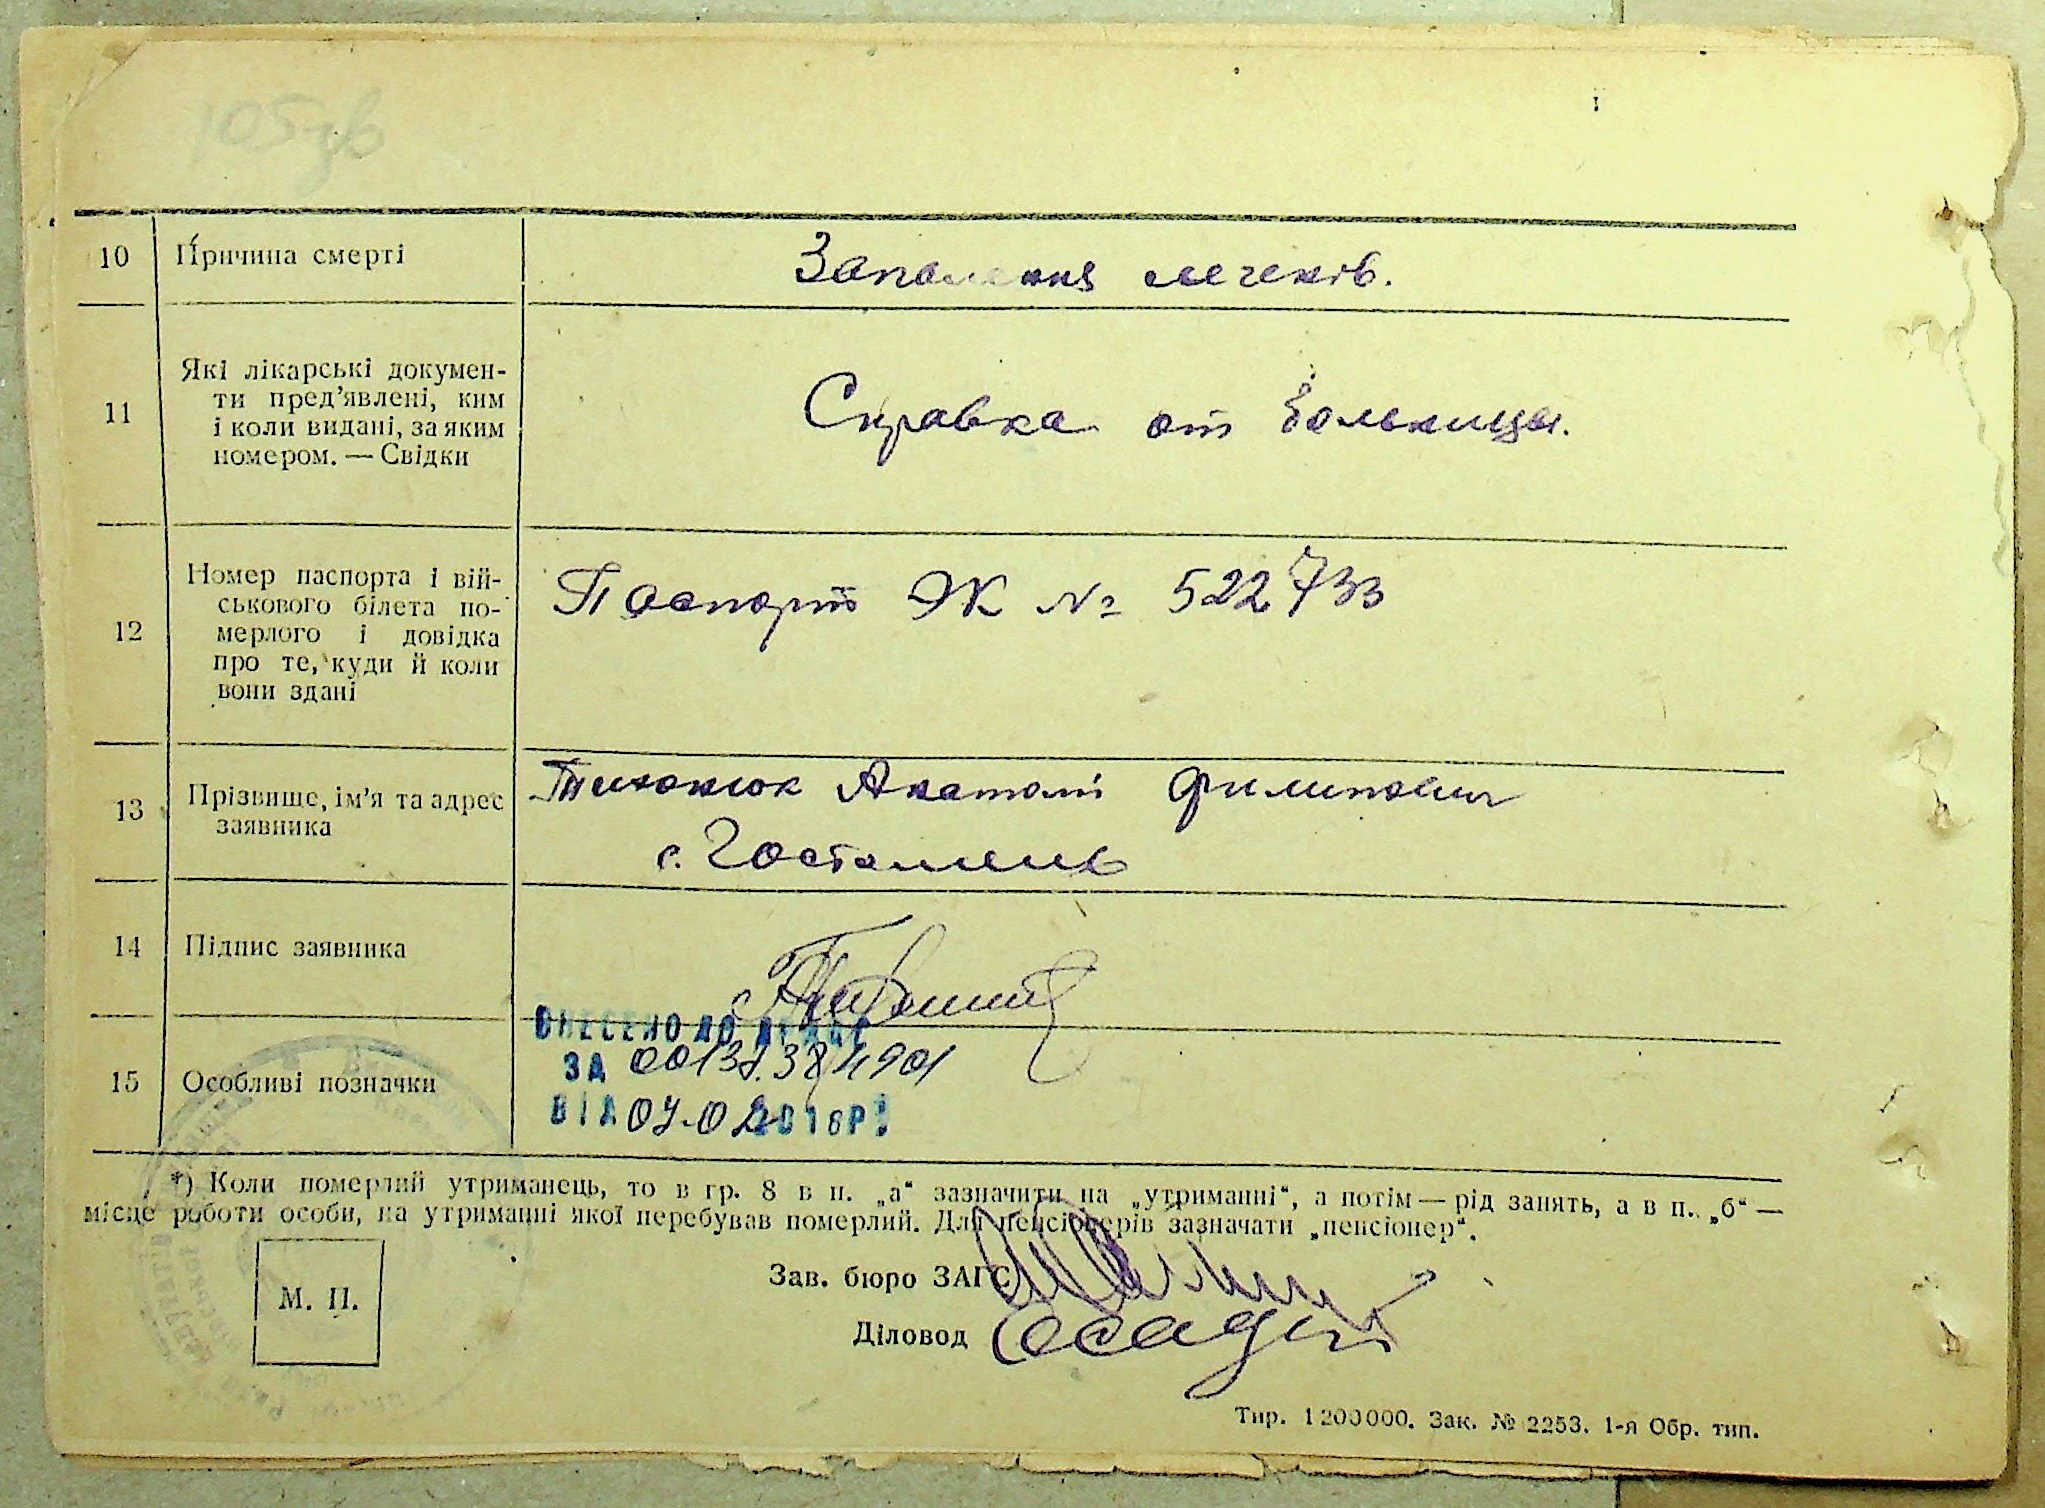 105зв
10 Причина смерті Запалення легенів.
11 Які лікарські докумен-
ти пред'явлені, ким
і коли видані, за яким
номером. — Свідки
Справка от больницы.
12 Номер паспорта і вій-
ськового білета по-
мерлого і довідка
про те, куди й коли
вони здані
Паспорт ЭК № 522733
13 Прізвище, ім'я та адрес
заявника
Тихонюк Анатолі Филипович
с. Гостомель
14 Підпис заявника
ВНЕСЕНО ДО ДРАЦС
ЗА
15 Особливі позначки
ВІД 2016Р.
*) Коли померлий утриманець, то в гр. 8 в п. „а“ зазначити на „утриманні“, а потім — рід занять, а в п. „б“ —
місце роботи особи, на утриманні якої перебував померлий. Для пенсіонерів зазначати „пенсіонер“.
М. П.
Зав. бюро ЗАГС
Діловод
Тир. 1200000. Зак. № 2253. 1-я Обр. тип.